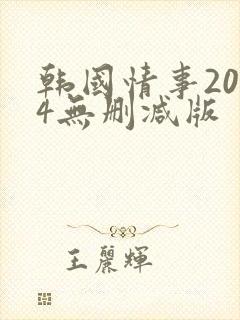 韩國情事20
4無删减版
王麗輝